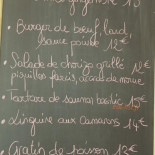 • Burger de bœuf, lard,
sauce poivre 12€
• Salade de chorizo grillé
piquillos farcis, arcade de morue 12€
• Tartare de saumon basilic 13€
• Linguine aux Camarons 14€
• Gratin de poisson 12€